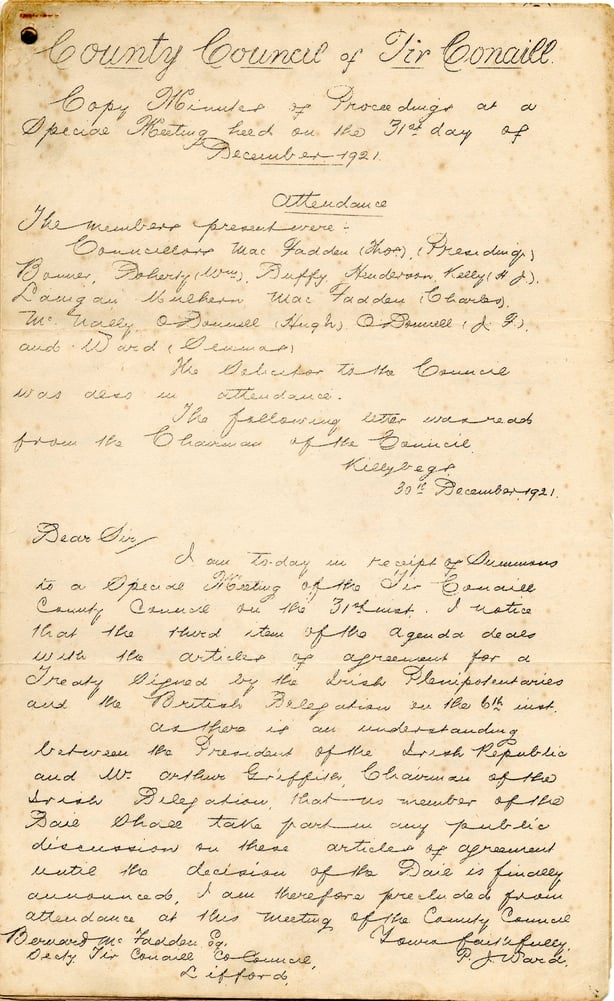 County Council of Tir Conaill.
Copy Minutes of Proceedings at a
Special Meeting held on the 31st day of
December 1921.
Attendance
The members present were:
Councillors Mac Fadden (Thos), (Presiding)
Bonner, Doherty (Wm), Duffy, Henderson, Kelly (H J).
Lanigan Mulhern Mac Fadden (Charles),
Mc Nally, O'Donnell (Hugh), O'Donnell (J. F).
and Ward (Seumas)
The Solicitor to the Council
was also in attendance.
The following letter was read
from the Chairman of the Council.
Killybegs.
30th December, 1921.
Dear Sir/
I am to-day in receipt of Summons
to a Special Meeting of the Tir Conaill
County Council on the 31st inst. I notice
that the third item of the agenda deals
with the articles of agreement for a
Treaty signed by the Irish Plenipotentaries
and the British Delegation on the 6th inst.
As there is an understanding
between the President of the Irish Republic
and Mr. Arthur Griffith, Chairman of the
Irish Delegation, that no member of the
Dail shall take part in any public
discussion on these articles of agreement
until the decision of the Dail is finally
announced, I am therefore precluded from
attendance at this meeting of the County Council
Yours faithfully,
P. J. Ward.
Bernard Mc Fadden Esq.
Secty. Tir Conaill Co Council,
Lifford.